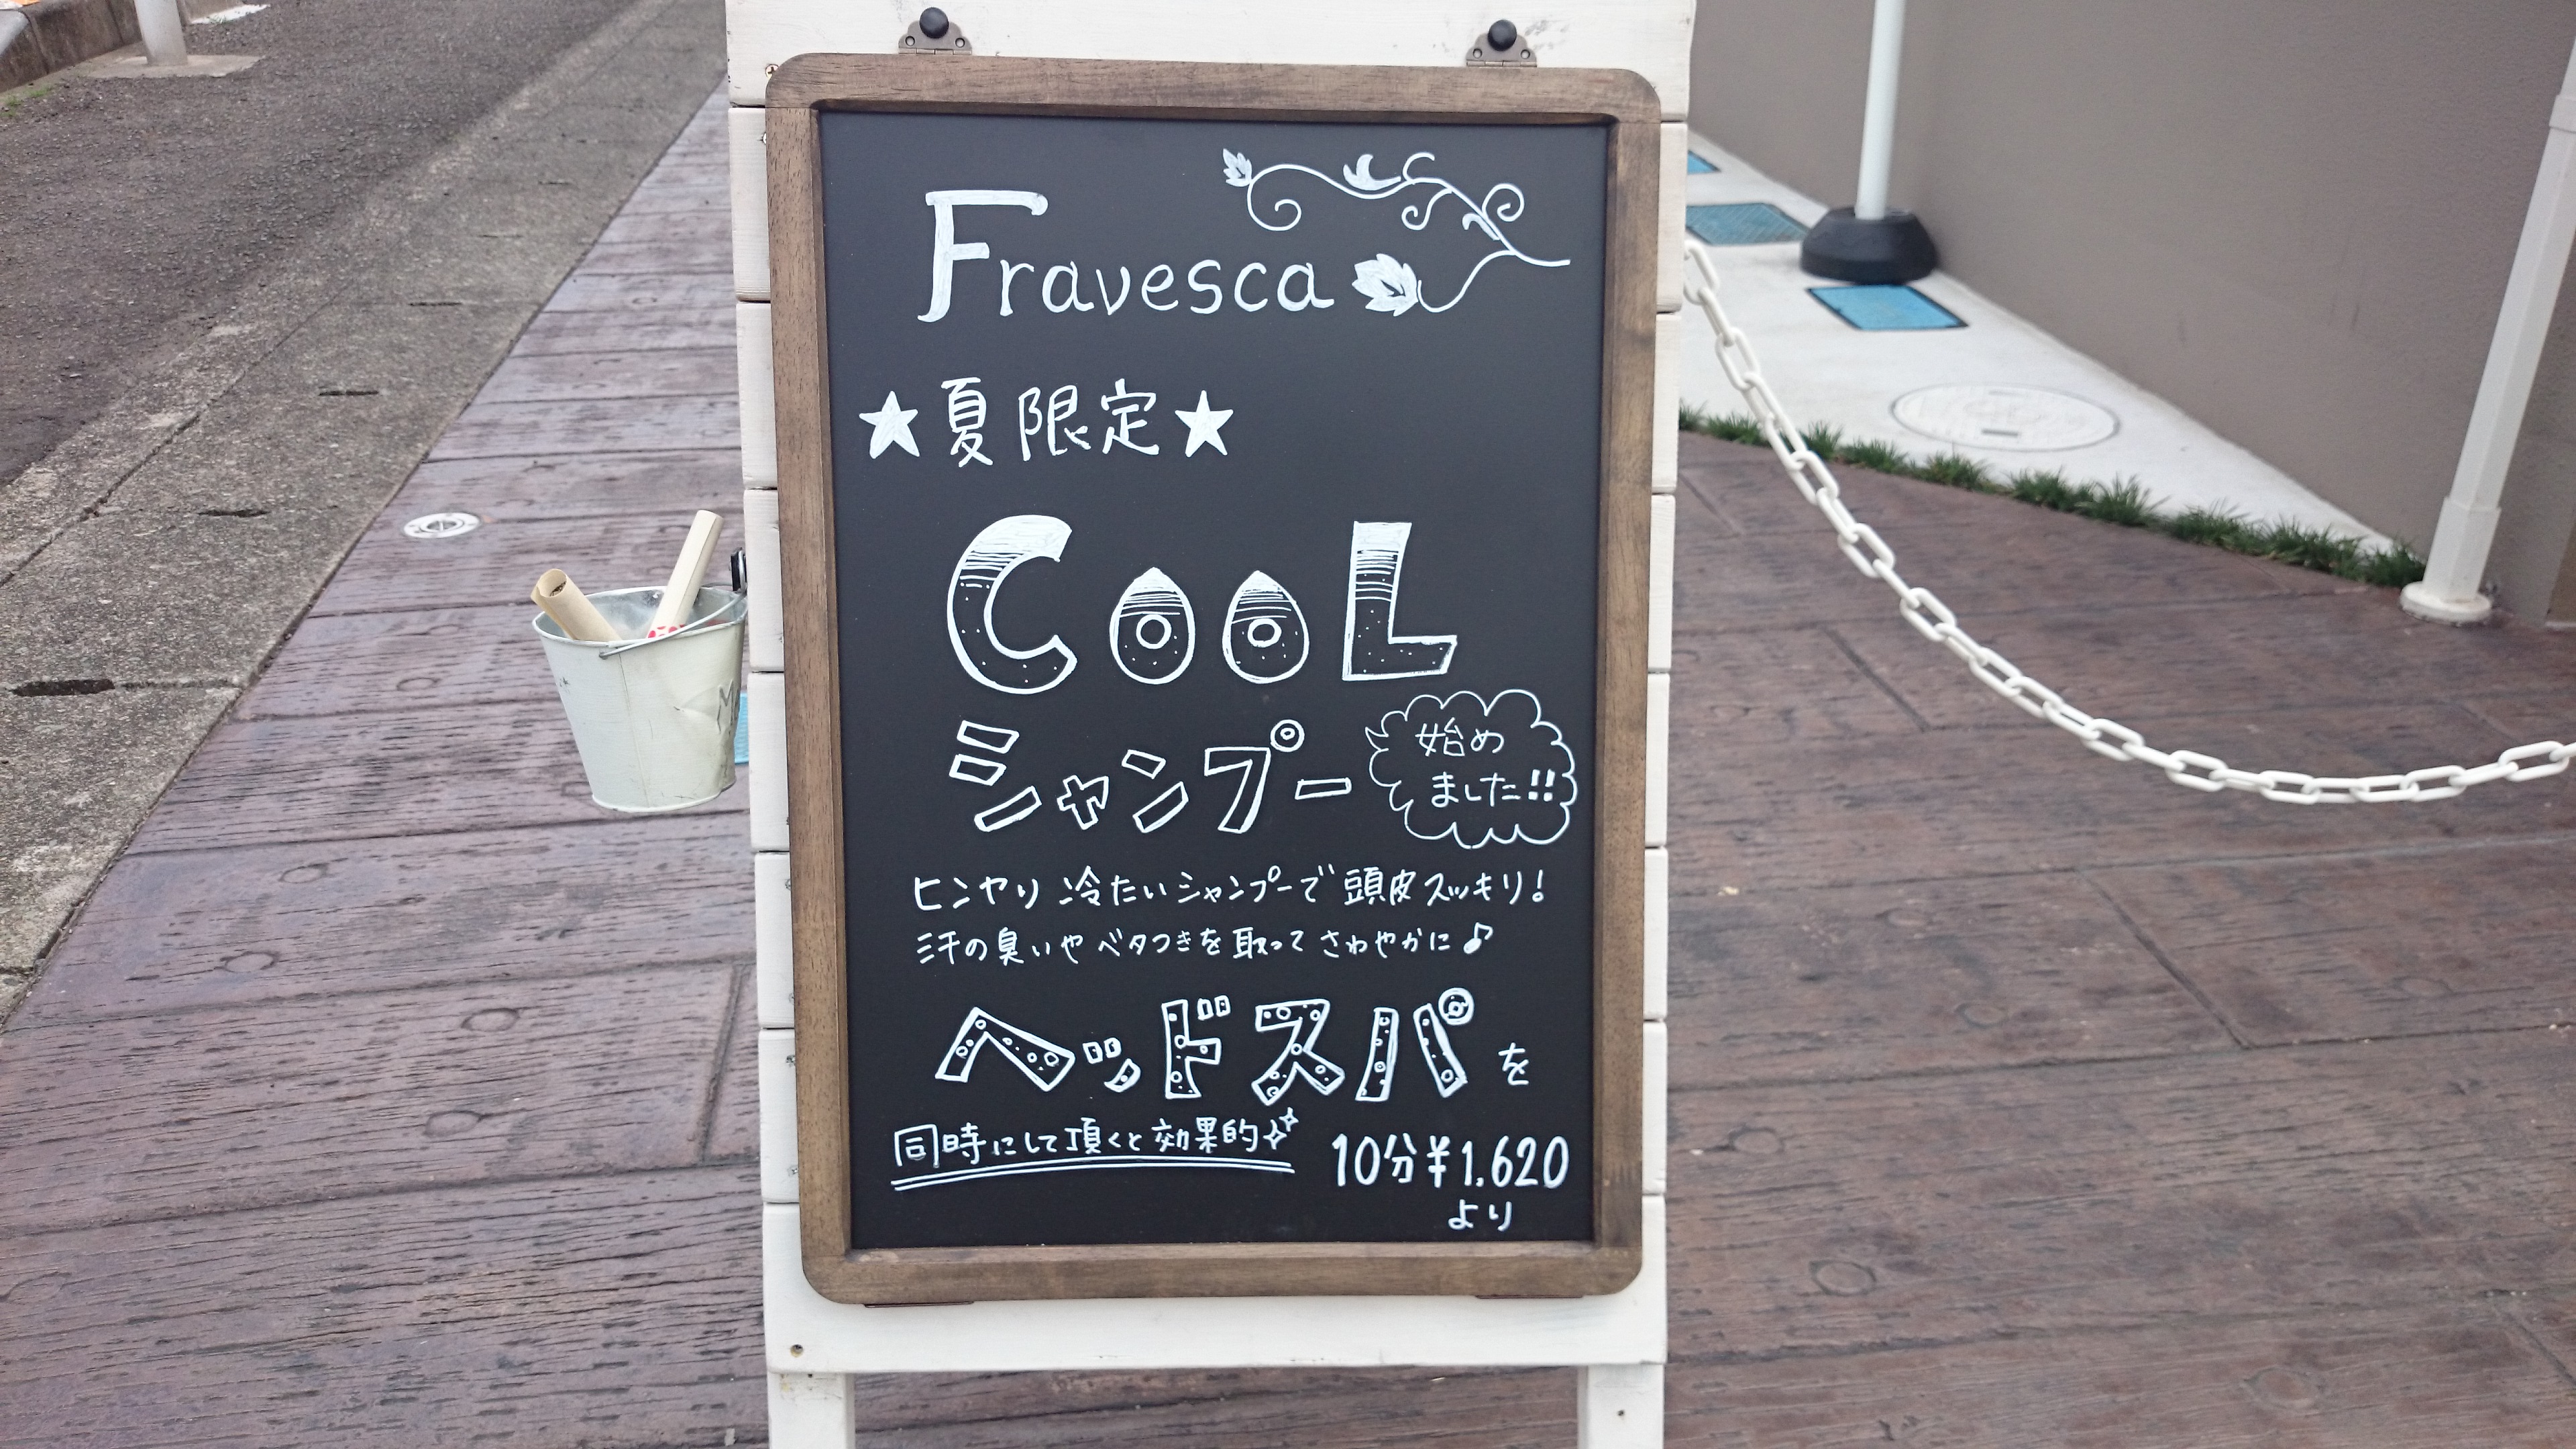 Fravesca
★夏限定★
COOL
シャンプー
始め
ました!!
ヒンヤリ 冷たいシャンプーで 頭皮スッキリ!
汗の臭いや ベタつきを 取って さわやかに♪
ヘッドスパを
同時にして頂くと効果的
10分¥1,620
より